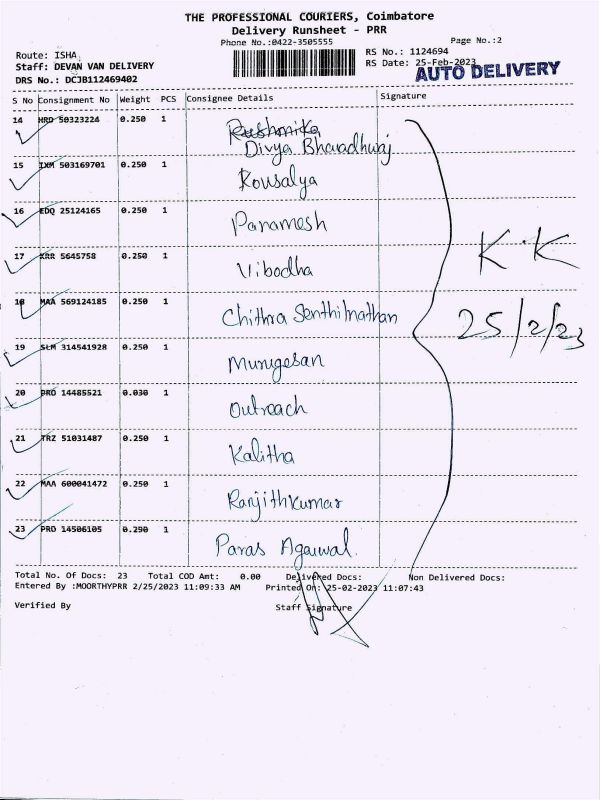 THE PROFESSIONAL COURIERS, Coimbatore
Delivery Runsheet - PRR
Phone No.:0422-3505555
Page No.:2
Route: ISHA
RS No.: 1124694
Staff: DEVAN VAN DELIVERY
RS Date: 25-Feb-2023
DRS No.: DCJB112469402
AUTO DELIVERY
S No Consignment No Weight PCS Consignee Details Signature
14 HRD 50323224 0.250 1 Rushmika
Divya Bharadhwaj
15 IXM 503169701 0.250 1 Kousalya
16 EDQ 25124165 0.250 1 Paramesh
17 KRR 5645758 0.250 1 Vibodha
18 MAA 569124185 0.250 1 Chithra Senthilnathan
19 SLM 314541928 0.250 1 Murugesan
20 PRO 14485521 0.030 1 Outreach
21 TRZ 51031487 0.250 1 Kalitha
22 MAA 600041472 0.250 1 Ranjithkumar
23 PRO 14506105 0.290 1 Paras Agarwal.
K.K
25/2/23
Total No. Of Docs: 23 Total COD Amt: 0.00 Delivered Docs: Non Delivered Docs:
Entered By :MOORTHYPRR 2/25/2023 11:09:33 AM Printed On: 25-02-2023 11:07:43
Verified By Staff Signature